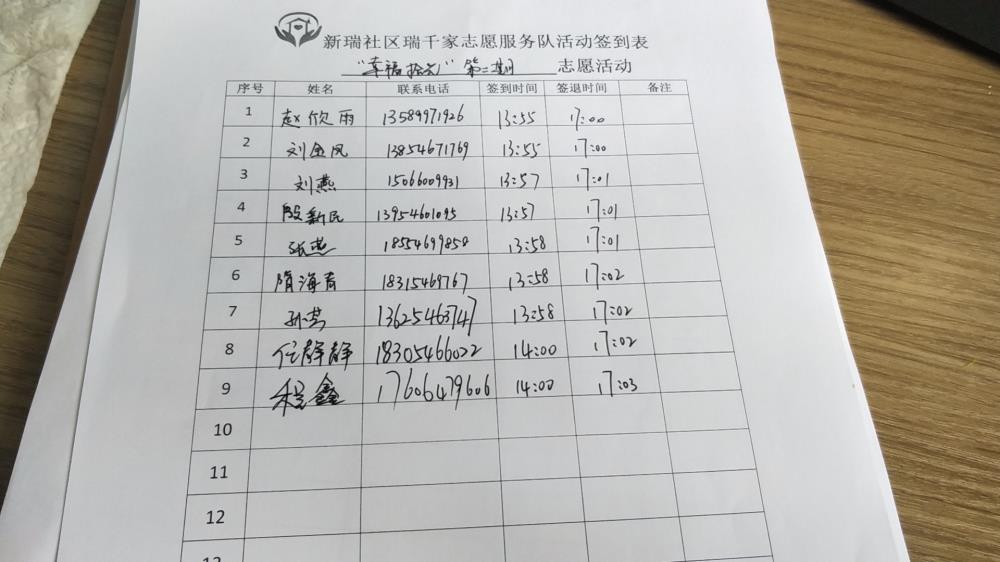 新瑞社区瑞千家志愿服务队活动签到表
"幸福拾光"第二期 志愿活动
序号 姓名 联系电话 签到时间 签退时间 备注
1 赵欣雨 13589971926 13:55 17:00
2 刘金凤 13854671769 13:55 17:00
3 刘燕 15066009931 13:57 17:01
4 殷新民 13954601095 13:57 17:01
5 张燕 18554699858 13:58 17:01
6 隋海青 18315469767 13:58 17:02
7 孙芸 13625463747 13:58 17:02
8 任静静 18305466022 14:00 17:02
9 程鑫 17606479606 14:00 17:03
10
11
12